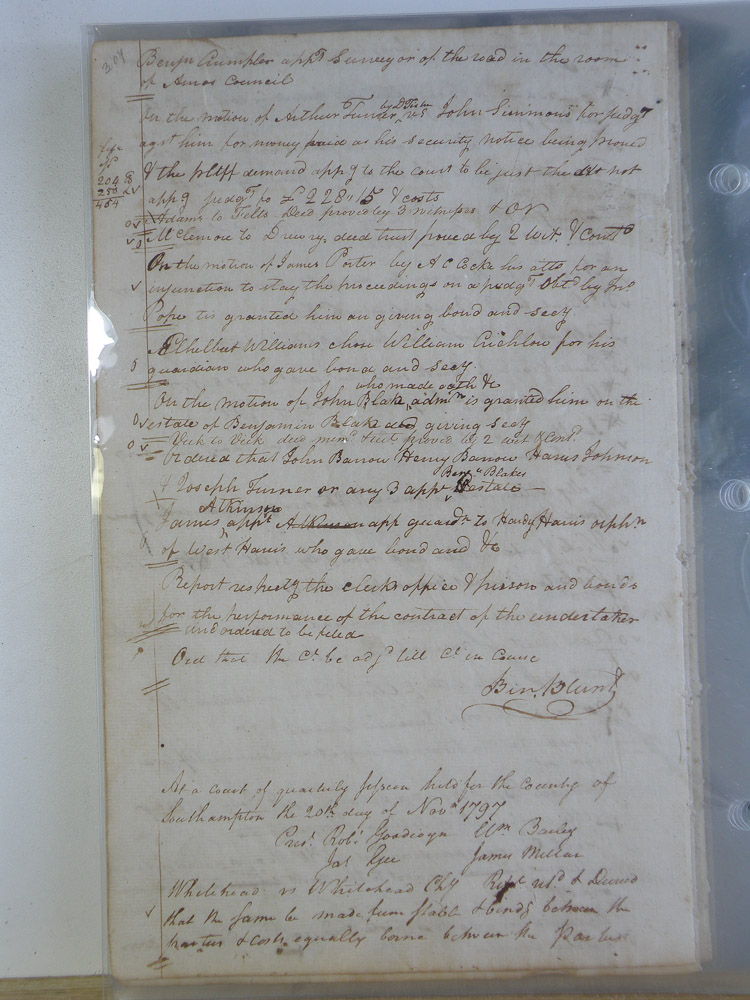 Benjn Crumpler appd Surveyor of the road in the room
of Amos Council
On the motion of Arthur Turner by D Fisher vs John Simmons for judgt
agst him for money paid as his security notice being proved
& the pltff demand appg to the court to be just the deft not
appg judgt fo £228,,15 & costs
204
250
454
Adams to Felts Deed proved by 3 witnesses & OR
McLemore to Drewry, deed trust proved by 2 Wit. & contd
On the motion of James Porter by A C Cocke his atto for an
injunction to stay the proceedings on a judgt Obtd by Jno
Pope tis granted him on giving bond and secy
Ethelbert Williams chose William Crichlow for his
guardian who gave bond and secy.
who made oath &c
On the motion of John Blake, admn is granted him on the
estate of Benjamin Blake decd giving secy
Vick to Vick deed proved by 2 wit & Cont.
Ordered that John Barrow Henry Barrow Harris Johnson
Benjn Blakes
& Joseph Turner or any 3 appr estate —
Atkinson
James appt Atkinson app guardn to Hardy Harris orphn
of West Harris who gave bond and &c
Report respectg the clerks office & prison and bonds
for the performance of the contract of the undertaker
and ordered to be filed
Ord that the Ct be adjd till Ct in Course
Ben. Blunt
At a court of quarterly session held for the County of
Southampton the 20th day of Novr 1797
Prest Robt Goodwyn Wm Bailey
Jas Gee James Millar
Whitehead vs Whitehead Chy Rept retd & Decreed
that the same be made firm stable & bindg between the
parties & costs equally borne between the Parties